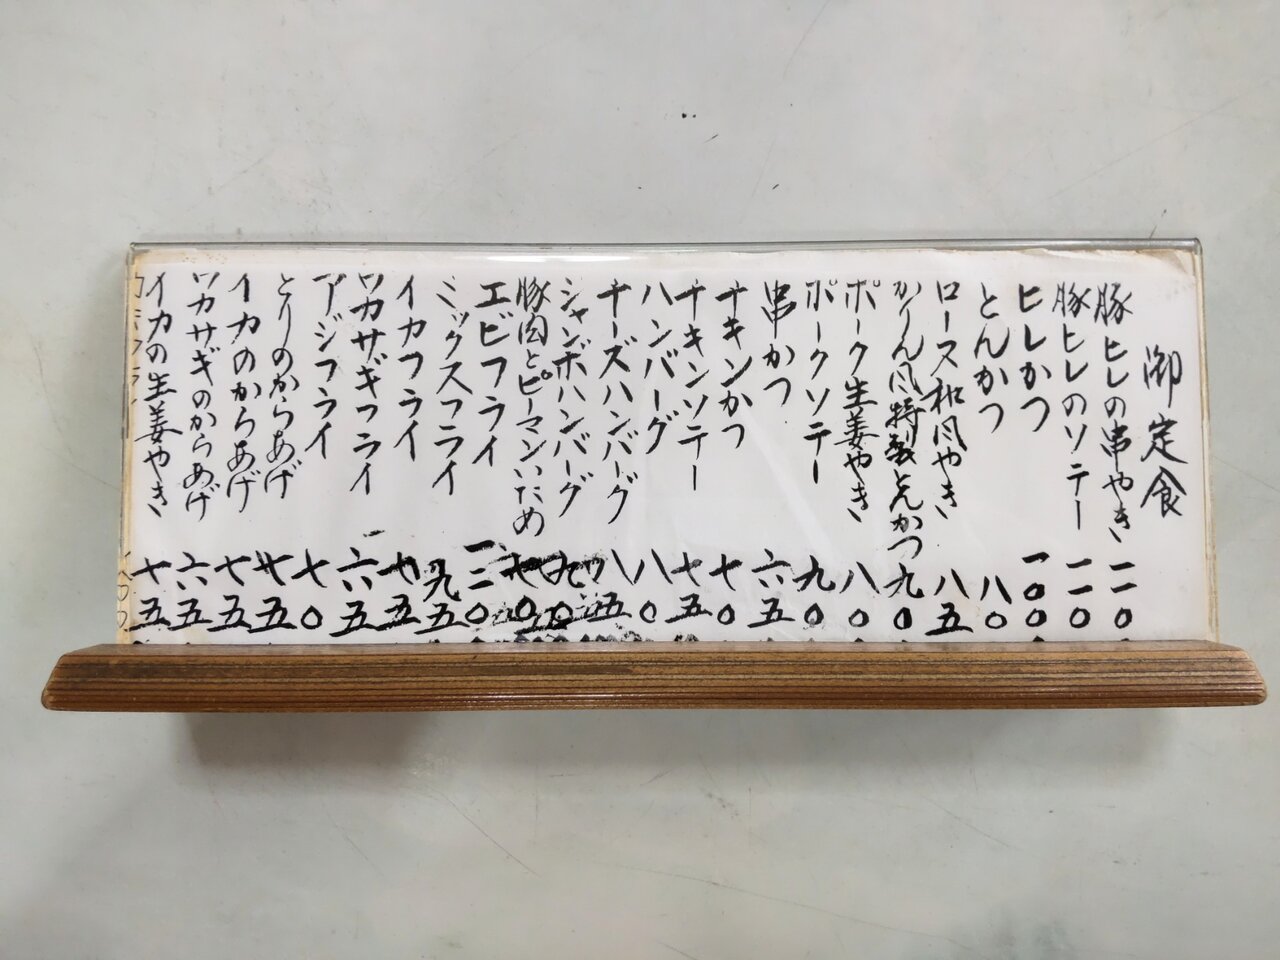 御定食
豚ヒレの串やき 一一〇
豚ヒレのソテー 一一〇
ヒレかつ 一〇〇
とんかつ 八〇
ロース和風やき 八五
かりん風特製とんかつ 九〇
ポーク生姜やき 八〇
ポークソテー 九〇
串かつ 六五
チキンかつ 七〇
チキンソテー 七五
ハンバーグ 八〇
チーズハンバーグ 八五
ジャンボハンバーグ
豚肉とピーマンいため
エビフライ 一二〇
ミックスフライ 九五
イカフライ 七五
ワカサギフライ 六五
アジフライ
とりのからあげ 七〇
イカのからあげ 七五
ワカサギのからあげ 六五
イカの生姜やき 七五